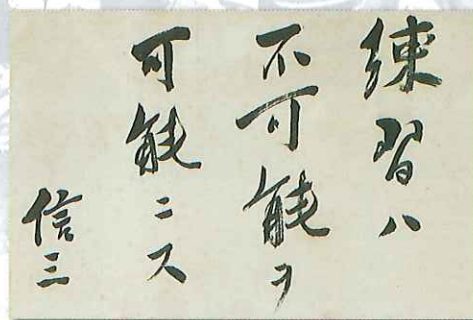 練習ハ
不可能ヲ
可能ニス
信三